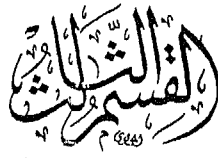 القسم الثالث